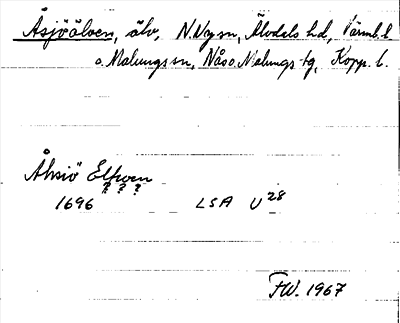 Åsjöälven, älv, N. Ny sn, Älvdals hd, Värml. l
o. Malungs sn, Nås o. Malungs tg, Kopp. l.
Åhsiö Elfwen
? ? ?
1696 LSA U 28
FW. 1967